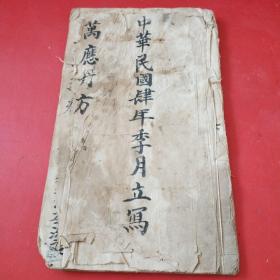 中華民國肆年季月立寫
萬應丹方